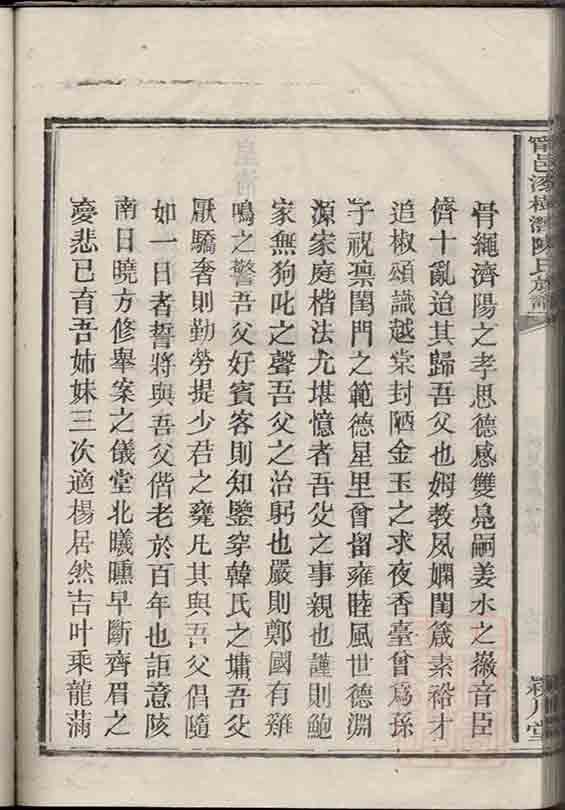 骨繩濟陽之孝思德感雙鳧嗣姜水之徽音臣
儕十亂迨其歸吾父也姆教夙嫻閨箴素裕才
追椒頌識越棠封陋金玉之求夜香臺曾爲孫
子祝禀閨門之範德星里曾留雍睦風世德淵
源家庭楷法尤堪憶者吾父之事親也謹則鮑
家無狗叱之聲吾父之治躬也嚴則鄭國有雞
鳴之警吾父好賓客則知鑒穿韓氏之墉吾父
厭驕奢則勤勞提少君之甕凡其與吾父倡隨
如一日者誓將與吾父偕老於百年也詎意陔
南日曉方修舉案之儀堂北曦曛早斷齊眉之
慶悲已育吾姊妹三次適楊居然吉叶乘龍滿
甯邑 陳氏族譜
潁川堂